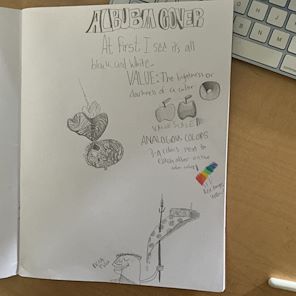 ALBUM COVER
At first I see its all
black and white.
VALUE: The lightness or
darkness of a color
VALUE SCALE
ANALOGOUS COLORS
3-4 colors next to
each other on the
color